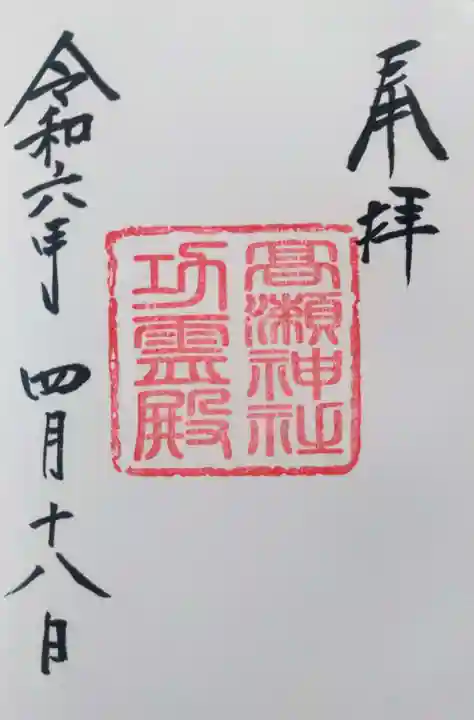 奉拝
高瀬神社
功霊殿
令和六年 四月十八日